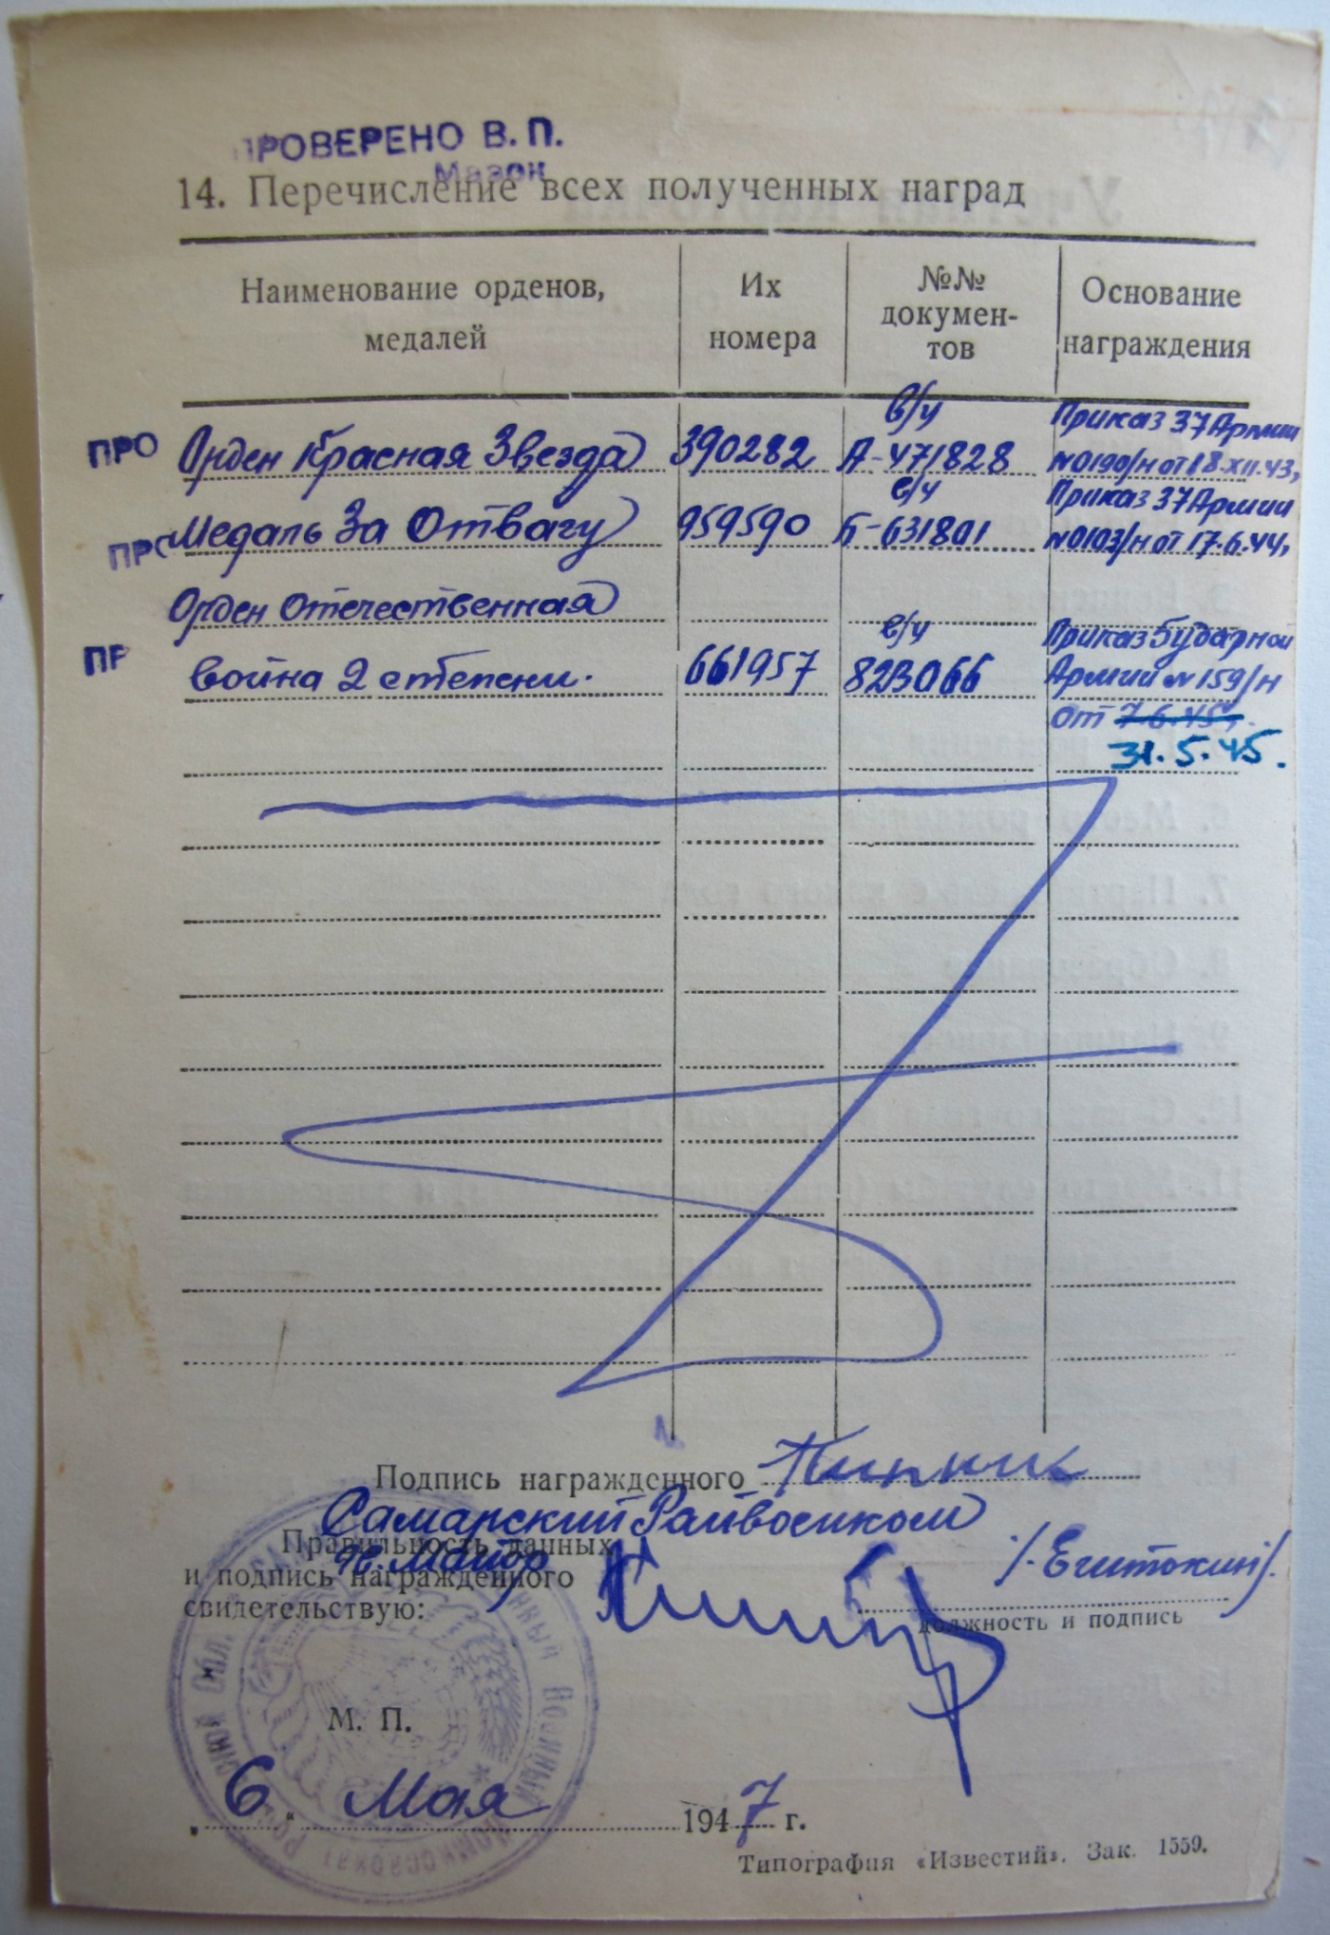 ПРОВЕРЕНО В. П.
Мазон
14. Перечисление всех полученных наград
Наименование орденов, медалей
Их номера
№№ докумен-тов
Основание награждения
ПРО Орден Красная Звезда 390282 в/ч А-471828 Приказ 37 Армии №0190/н от 18.XII.43,
ПРО Медаль За Отвагу 959590 в/ч Б-631801 Приказ 37 Армии №0103/н от 17.6.44,
Орден Отечественная
ПР война 2 степени. 661957 в/ч 823066 Приказ 5 ударной Армии №159/н
от 7.6.45,
31.5.45.
Подпись награжденного Пипник
Самарский Райвоенком
Правильность данных
и подпись награжденного
свидетельствую:
Майор
должность и подпись
М. П.
„ 6 “ Мая 1947 г.
Типография «Известий». Зак. 1559.